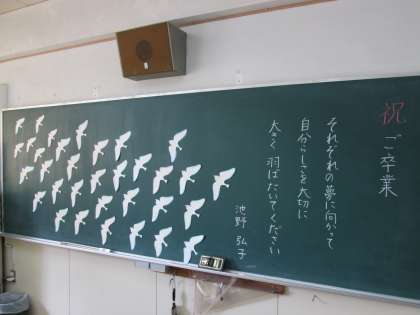 祝 ご卒業
それぞれの夢に向かって
自分らしさを大切に
大きく羽ばたいてください
池野 弘子